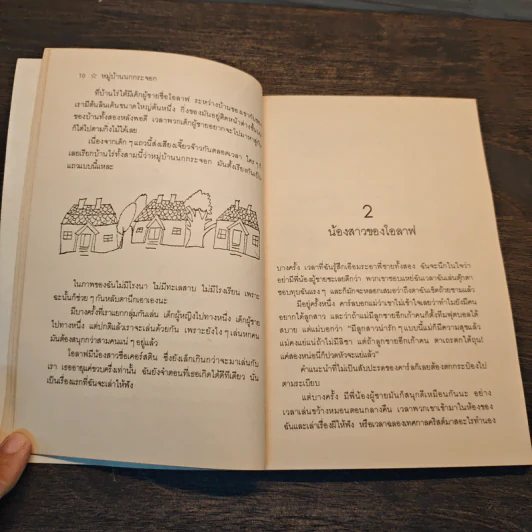 10 ☆ หมู่บ้านนกกระจอก
ที่บ้านไร่ใต้มีเด็กผู้ชายชื่อโอลาฟ ระหว่างบ้านของเขากับของ
เรามีต้นลินเดนขนาดใหญ่ต้นหนึ่ง กิ่งของมันอยู่ติดหน้าต่างชั้นบน
ของบ้านทั้งสองหลังพอดี เวลาพวกเด็กผู้ชายอยากจะไปมาหาสู่กัน
ก็ไต่ไปตามกิ่งไม้ได้เลย
เนื่องจากเด็ก ๆ แถวนี้ส่งเสียงเจี๊ยวจ๊าวกันตลอดเวลา ใคร ๆ ก็
เลยเรียกบ้านไร่ทั้งสามนี้ว่าหมู่บ้านนกกระจอก มันตั้งเรียงกันเป็น
แถวแบบนี้แหละ
ในภาพของฉันไม่มีโรงนา ไม่มีทะเลสาบ ไม่มีโรงเรียน เพราะ
ฉะนั้นก็ช่วย ๆ กันหลับตานึกเอาเองนะ
มีบางครั้งที่เราแยกกลุ่มกันเล่น เด็กผู้หญิงไปทางหนึ่ง เด็กผู้ชาย
ไปทางหนึ่ง แต่ปกติแล้วเราจะเล่นด้วยกัน เพราะยังไง ๆ เล่นหกคน
มันต้องสนุกกว่าสามคนแน่ ๆ อยู่แล้ว
โอลาฟมีน้องสาวชื่อเคอร์สติน ซึ่งยังเล็กเกินกว่าจะมาเล่นกับ
เรา เธออายุแค่ขวบครึ่งเท่านั้น ฉันยังจำตอนที่เธอเกิดได้ดีทีเดียว นั่น
เป็นเรื่องแรกที่ฉันจะเล่าให้ฟัง
2
น้องสาวของโอลาฟ
บางครั้ง เวลาที่ฉันรู้สึกเอือมระอาพี่ชายทั้งสอง ฉันจะนึกในใจว่า
อย่ามีพี่น้องผู้ชายซะเลยดีกว่า พวกเขาชอบแหย่ฉันเวลาฉันเล่นตุ๊กตา
ชอบทุบฉันแรง ๆ และก็มักจะหลอกเสมอว่าถึงตาฉันเช็ดถ้วยชามแล้ว
มีอยู่ครั้งหนึ่ง คาร์ลบอกแม่ว่าเขาไม่เข้าใจเลยว่าทำไมยังมีคน
อยากได้ลูกสาว และว่าถ้าแม่มีลูกชายอีกเก้าคนก็ตั้งทีมฟุตบอลได้
สบาย แต่แม่บอกว่า “มีลูกสาวน่ารัก ๆ แบบนี้แม่ก็มีความสุขแล้ว
แม่คงแย่แน่ถ้าไม่มีลิซา แต่ถ้าลูกชายอีกเก้าคน ตาเถรตกใต้ถุน!
แค่สองหน่อนี่ก็ปวดหัวจะแย่แล้ว”
คำแนะนำที่ไม่เป็นสับปะรดของคาร์ลก็เลยต้องตกกระป๋องไป
ตามระเบียบ
แต่บางครั้ง มีพี่น้องผู้ชายมันก็สนุกดีเหมือนกันนะ อย่าง
เวลาเล่นขว้างหมอนตอนกลางคืน เวลาพวกเขาเข้ามาในห้องของ
ฉันและเล่าเรื่องผีให้ฟัง หรือเวลาฉลองเทศกาลคริสต์มาสอะไรทำนอง